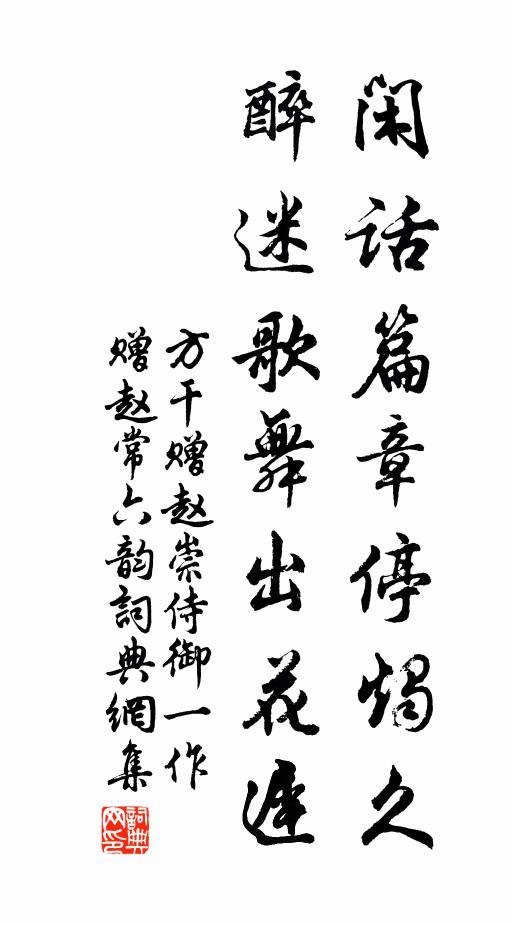 闲话篇章停烛久
醉迷歌舞出花遲
方干赠赵崇侍御一作
赠赵常六韵詞典網集
詞典
网印